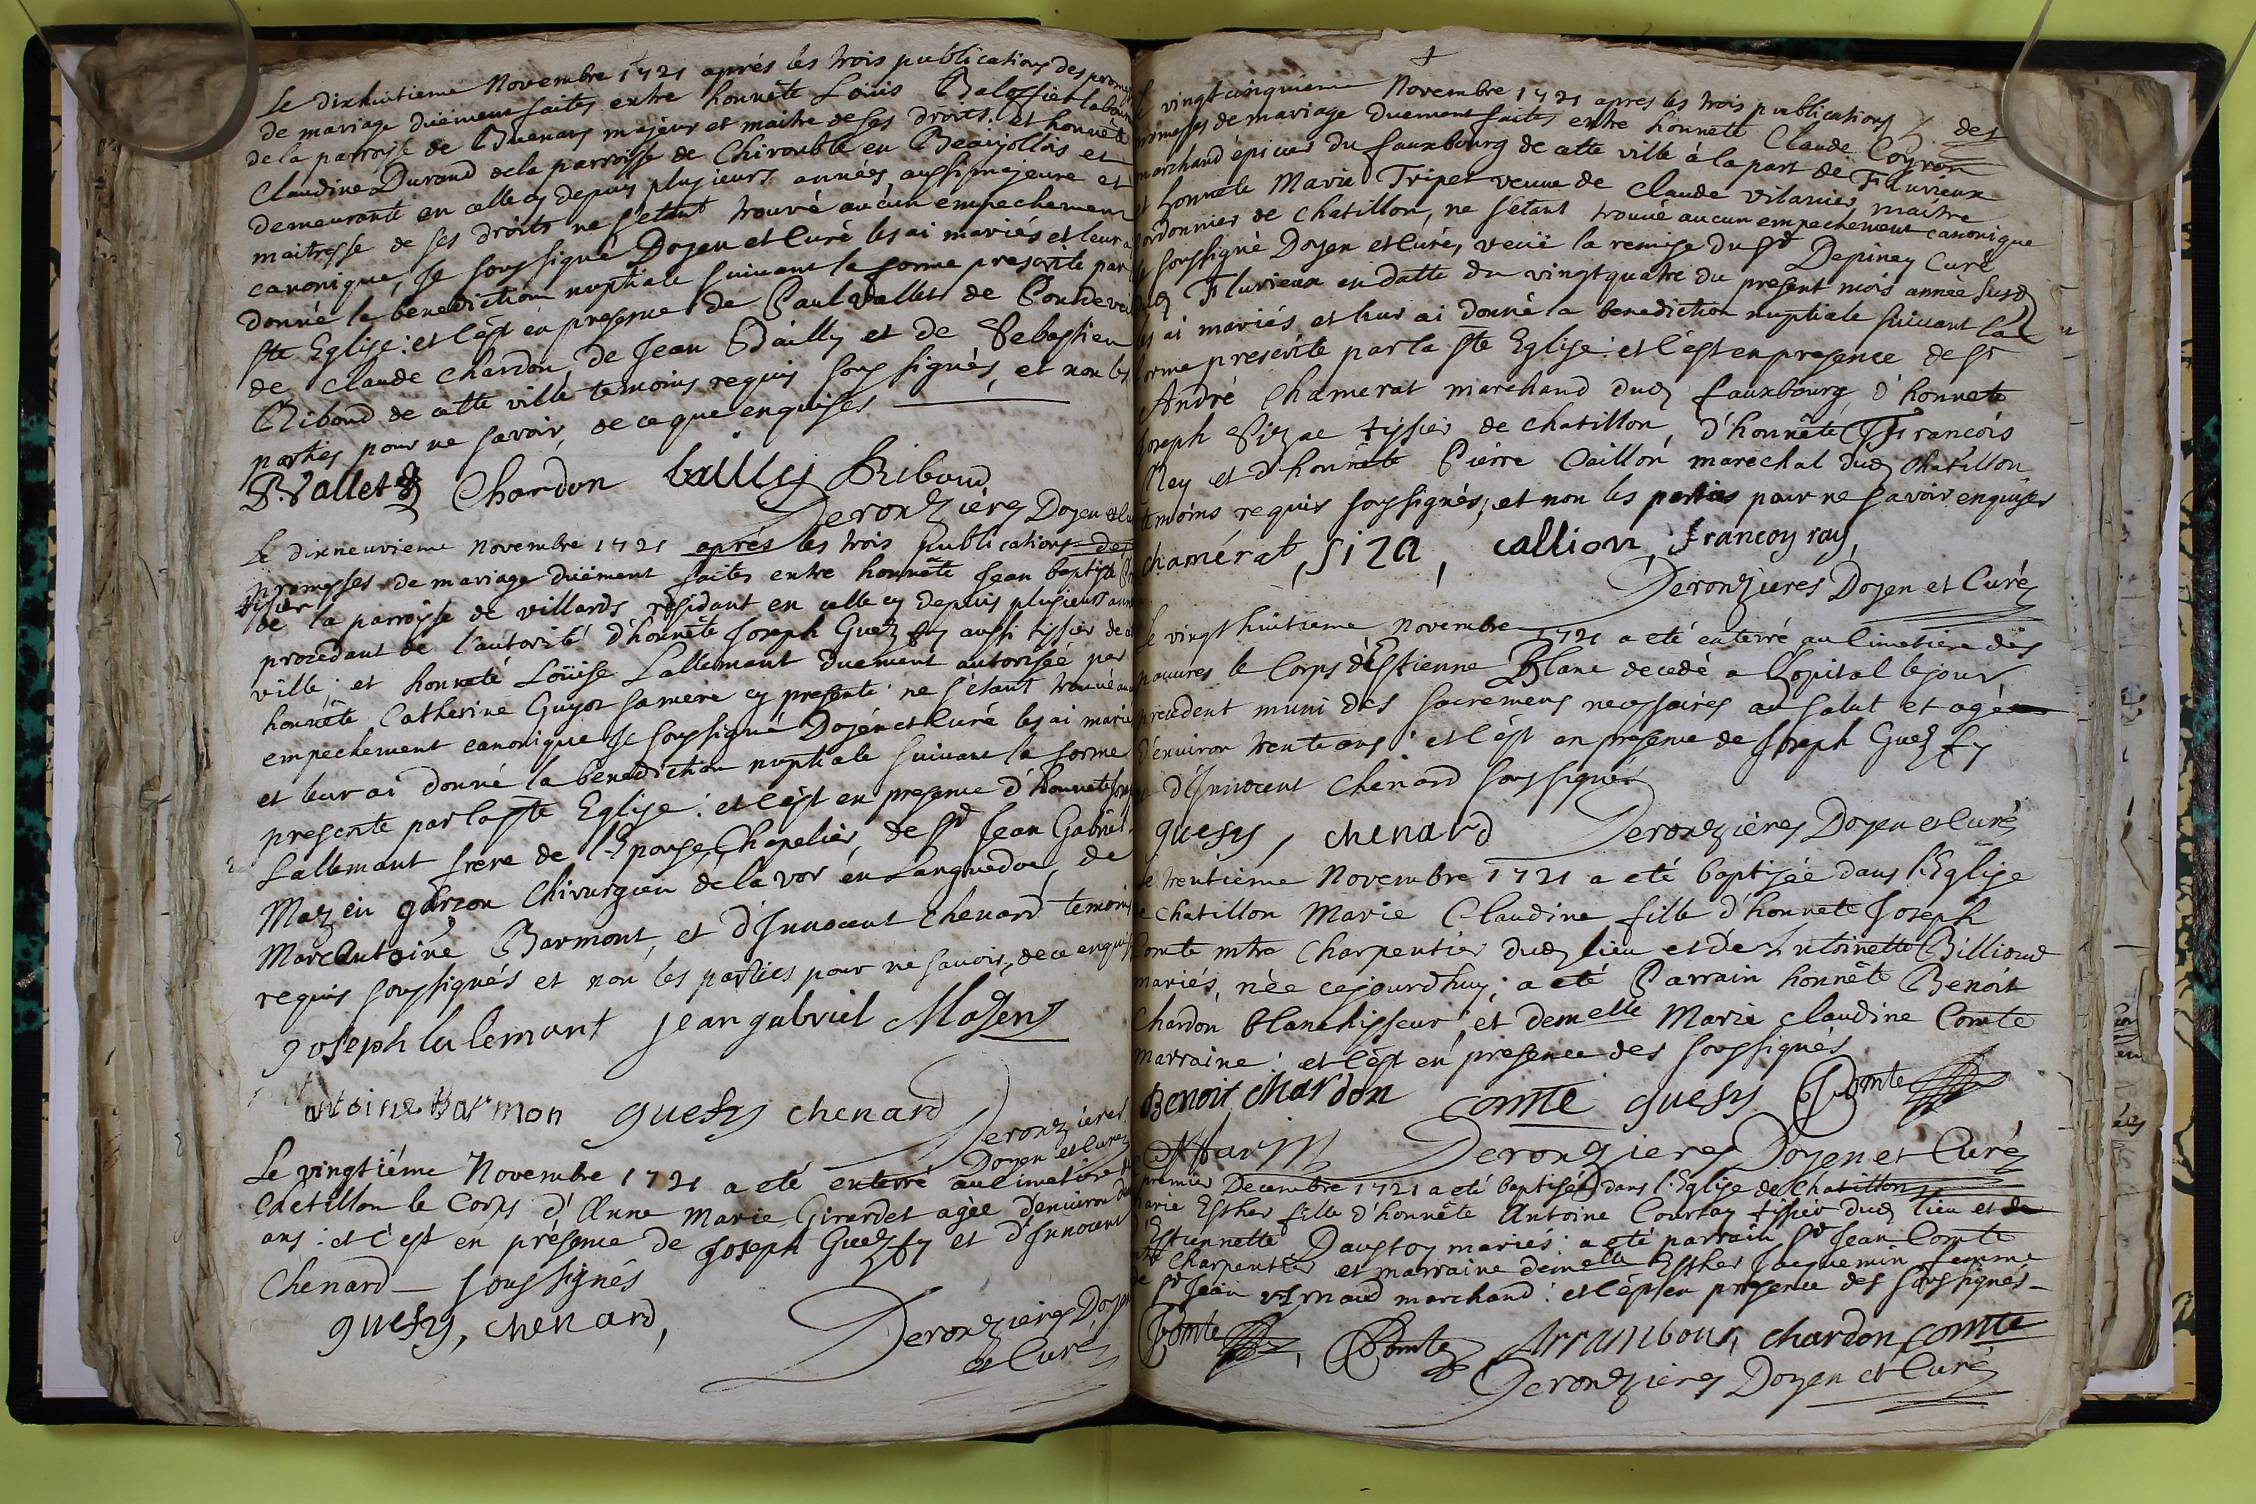 Le dixhuitieme Novembre 1721 aprés les trois publications des
de mariage düement faites entre honnête Loüis
de la parroisse de Buenans majeur et maitre de ses droits, et honnête
Claudine Durand de la parroisse de Chirouble en Beaujollois et
demeurante en celle cy depuis plusieurs années aussi majeure et
maitresse de ses droits ne s'etant trouvé aucun empechement
canonique, Je soussigné Doyen et Curé les ai mariés et leur
donné la benediction nuptiale suivant la forme prescrite par
ste Eglise: et c'est en presence de Paul vallet de
de Claude Chardon, de Jean Bailly et de Sebastien
Riboud de cette ville temoins requis soussignés, et non les
parties pour ne savoir, de ce que enquises
P. Vallet Chardon bailly Riboud
Deronzières Doyen et
Le dixneuvieme Novembre 1721 aprés les trois publications des
promesses de mariage düement faites entre honnête Jean baptiste
tissier
de la parroisse de villards résidant en celle cy depuis plusieurs
procedant de l'autorité d'honnête Joseph Guezfy aussi tissier de
ville; et honnete Loüise Lallemant duement autorisée par
honnête Catherine Guyot sa mere cy presente: ne s'étant trouvé
empechement canonique Je soussigné Doyen et Curé les ai mariés
et leur ai donné la benediction nuptiale suivant la forme
prescrite par la ste Eglise: et c'est en presence d'honnete
Lallemant frere de l'Epouse Chapelier, de sr Jean Gabriel
Mazein garcon Chirurgien de la vor en Languedoc, de
Marc Antoine Barmont, et d'Innocent Chenard temoins
requis soussignés et non les parties pour ne savoir, de ce
Joseph lalemant jean gabriel Mazens
antoine Barmon guesfy chenard
Deronzières
Doyen et Curez
Le vingtiéme Novembre 1721 a eté enterré au cimetiere
Catillon le Corps d'Anne Marie Girardet agèe d'environ
ans: et c'est en présence de Joseph Guezfy et d'Innocent
Chenard soussignés
guesfy, chenard,
Deronzieres Doyen
et Curé
vingt cinquieme Novembre 1721 apres les trois publications des
promesses de mariage duement faites entre honnete Claude Coyron
marchand épicier du fauxbourg de cette ville à la part de Fluvieux
et honnete Marie Tripet veuve de Claude vilanier maitre
cordonnier de Chatillon, ne s'etant trouvé aucun empechement canonique
soussigné Doyen et Curé, veüe la remise du sr Depiney Curé
dud Fluvieux en datte du vingt quatre du present mois année susd
les ai mariés et leur ai donné la benediction nuptiale suivant la
forme prescrite par la ste Eglise: et c'est en presence de sr
André Chamerat marchand dud fauxbourg, d'honnete
Joseph Sizac tissier de chatillon, d'honnête Francois
Rey et d'honnete Pierre Caillon marechal dud Chatillon
temoins requis soussignés, et non les parties pour ne savoir enquises
chamérat, siza, callion, francoy ray,
Deronzieres Doyen et Curé
Le vingt huitieme Novembre 1721 a eté enterré au Cimetiere des
pauvres le Corps d'Estienne Blanc decedé a lopital le jour
precedent muni des sacremens necessaires au salut et agé
d'environ trente ans: et c'est en presence de Joseph Guezfy
et d'Innocent Chenard soussignés
guesfy, chenard Deronzieres Doyen et Curé
Le trentieme Novembre 1721 a eté baptisée dans l'Eglise
de Chatillon Marie Claudine fille d'honnete Joseph
Comte mtre Charpentier dud lieu et de Antoinette Billioud
mariés, née cejourd'huy; a eté Parrain honnête Benoit
Chardon blanchisseur, et demelle Marie Claudine Comte
marraine: et c'est en presence des soussignés
Benoit chardon comte guesfy Comte
Deronzieres Doyen et Curé
premier Decembre 1721 a eté baptisée dans l'Eglise de Chatillon
Marie Esther fille d'honnête Antoine Courtoy tissier dud lieu et de
Estiennette Daustoy mariés: a eté parrain sr Jean Comte
mtre Charpentier et marraine demelle Esther Jacquemin femme
de sr Jean vernaud marchand: et c'est en presence des soussignés
Comte, Comte, chardon comte
Deronzieres Doyen et Curé